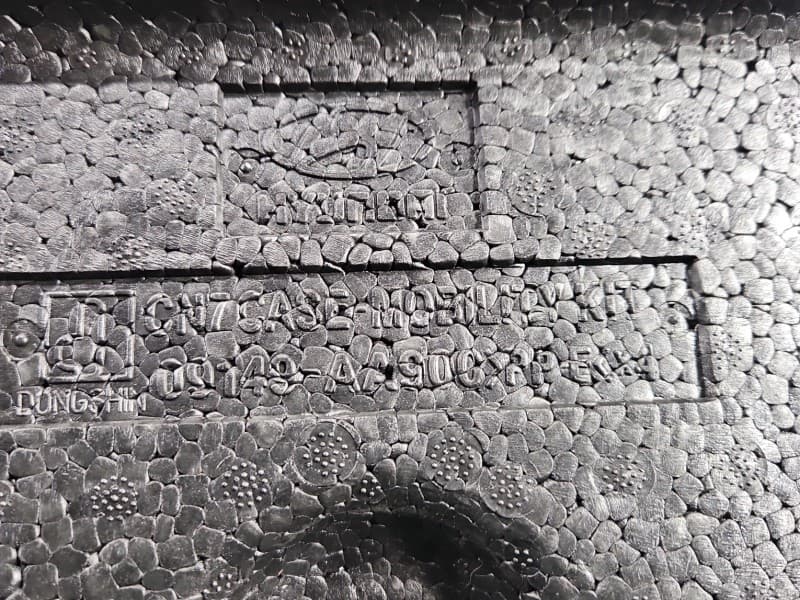 HYUNDAI
CN7 CASE-MOBILITY KIT
09149-AA900
DONGSHIN